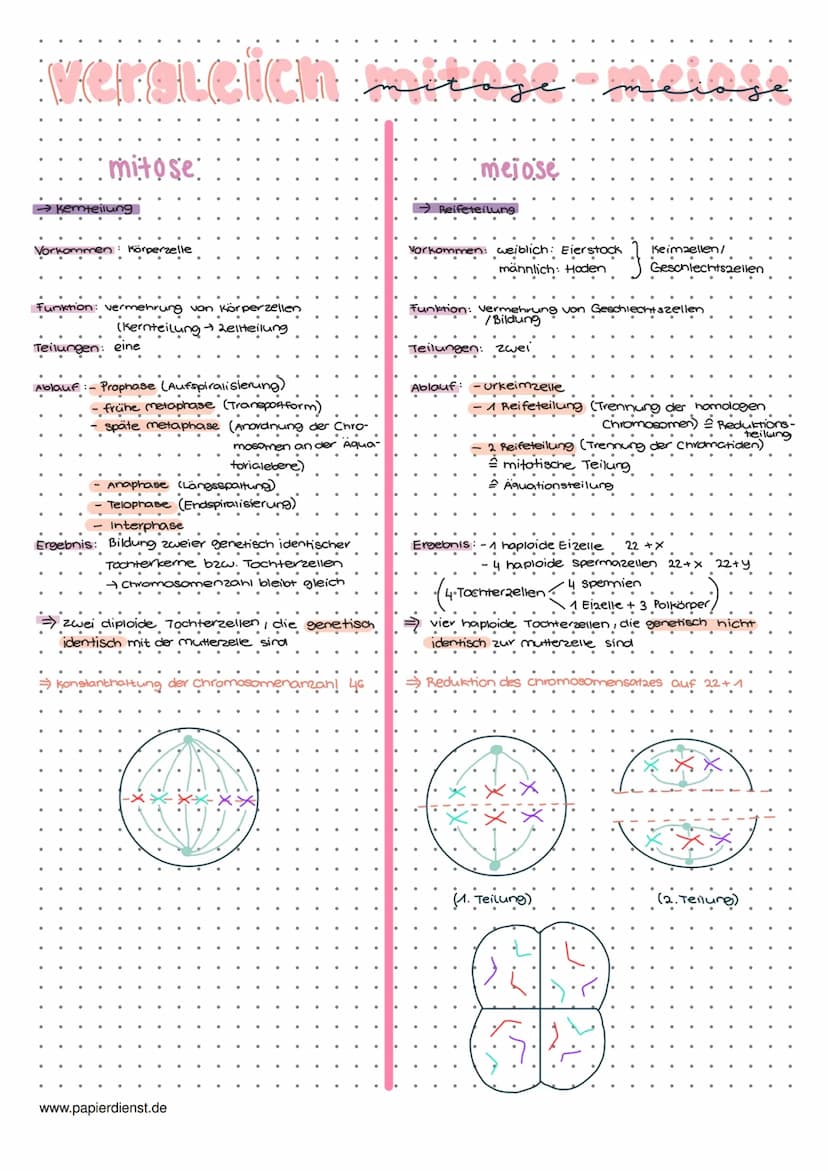 vergleich mitose - meiose
mitose
→ Kernteilung
Vorkommen: Körperzelle
Funktion: vermehrung von Körperzellen
(Kernteilung → Zellteilung
Teilungen: eine
Ablauf: - Prophase (Aufspiralisierung)
- frühe metaphase (Transportform)
- späte metaphase (Anordnung der Chro-
mosomen an der Äqua-
torialebene)
- Anaphase (Längsspaltung)
- Telophase (Endspiralisierung)
- Interphase
Ergebnis: Bildung zweier genetisch identischer
Tochterkerne bzw. Tochterzellen
→ Chromosomenzahl bleibt gleich
⇒ zwei diploide Tochterzellen, die genetisch
identisch mit der mutterzelle sind
⇒ Konstanthaltung der Chromosomenanzahl 46
meiose
→ Reifeteilung
Vorkommen: weiblich: Eierstock } Keimzellen/
männlich: Hoden Geschlechtszellen
Funktion: Vermehrung von Geschlechtszellen
/Bildung
Teilungen: zwei
Ablauf: - Urkeimzelle
- 1 Reifeteilung (Trennung der homologen
Chromosomen) ≙ Reduktions-
teilung
- 2 Reifeteilung (Trennung der Chromatiden)
≙ mitotische Teilung
≙ Äquationsteilung
Ergebnis: - 1 haploide Eizelle 22 + X
- 4 haploide spermazellen 22+X 22+y
(4 Tochterzellen < 4 spermien
1 Eizelle + 3 Polkörper)
⇒ vier haploide Tochterzellen, die genetisch nicht
identisch zur mutterzelle sind
⇒ Reduktion des Chromosomensatzes auf 22+1
(1. Teilung)
(2. Teilung)
www.papierdienst.de